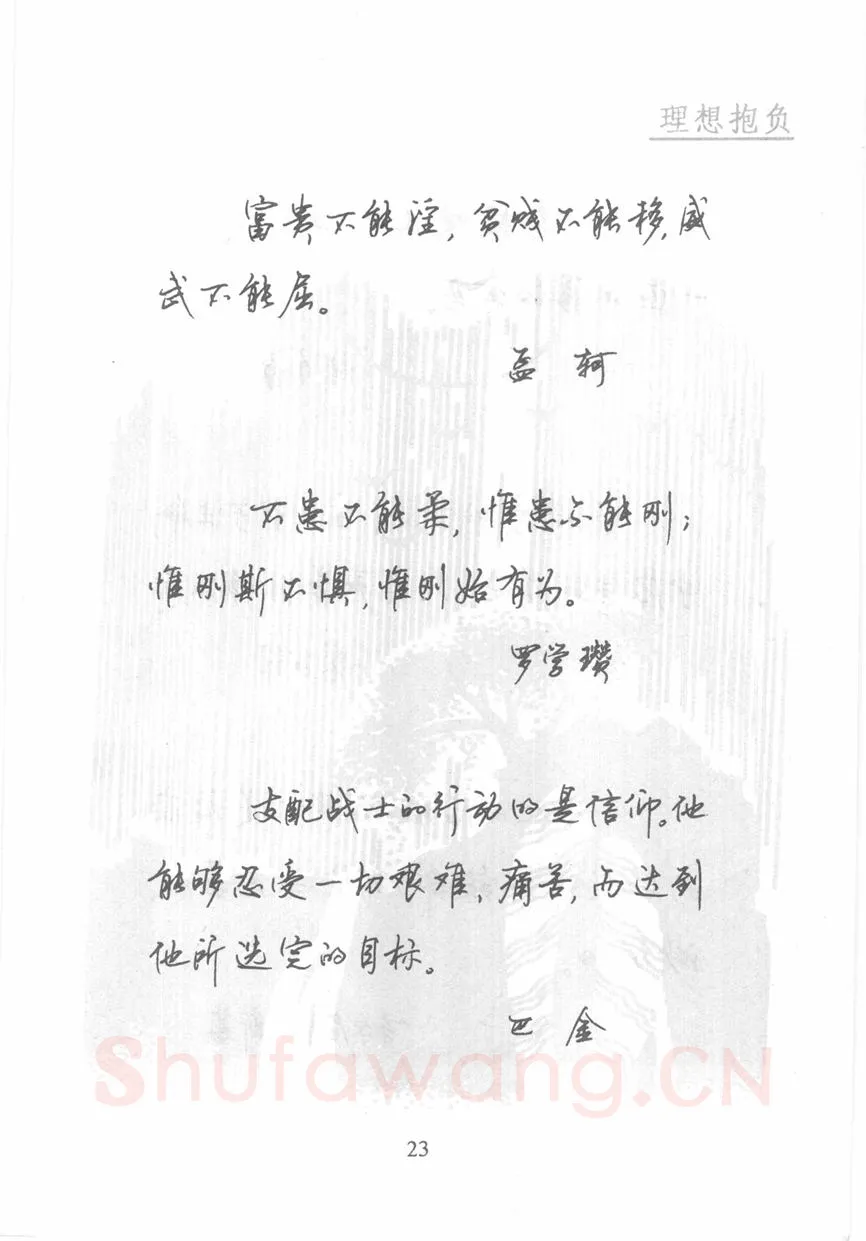 理想抱负
富贵不能淫,贫贱不能移,威
武不能屈。
孟 轲
不患不能柔,惟患不能刚;
惟刚斯不惧,惟刚始有为。
罗学瓒
支配战士的行动的是信仰。他
能够忍受一切艰难、痛苦,而达到
他所选定的目标。
巴 金
Shufawang.CN
23